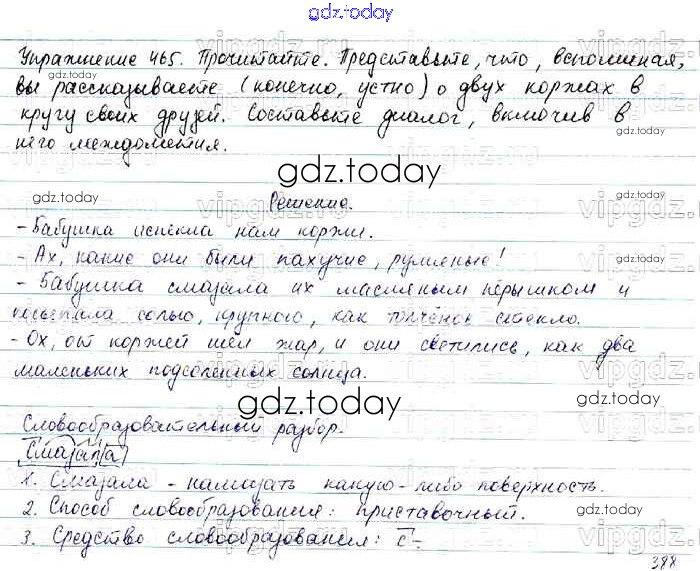 gdz.today
Упражнение 465. Прочитайте. Представьте, что, вспоминая,
вы рассказываете (конечно, устно) о двух коржах в
кругу своих друзей. Составьте диалог, включив в
него междометия.
gdz.today
Решение.
- Бабушка испекла нам коржи.
- Ах, какие они были пахучие, румяные!
- Бабушка смазала их масляным пёрышком и
посыпала солью, крупною, как толчёное стекло.
- Ох, от коржей шёл жар, и они светились, как два
маленьких подсоленных солнца.
gdz.today
Словообразовательный разбор.
Смазала
1. Смазала - намазать какую-либо поверхность.
2. Способ словообразования: приставочный.
3. Средство словообразования: с-.
388